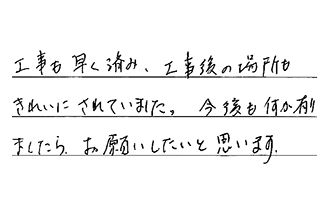 工事も早く済み、工事後の場所も
きれいにされていました。今後も何か有り
ましたら、お願いしたいと思います。